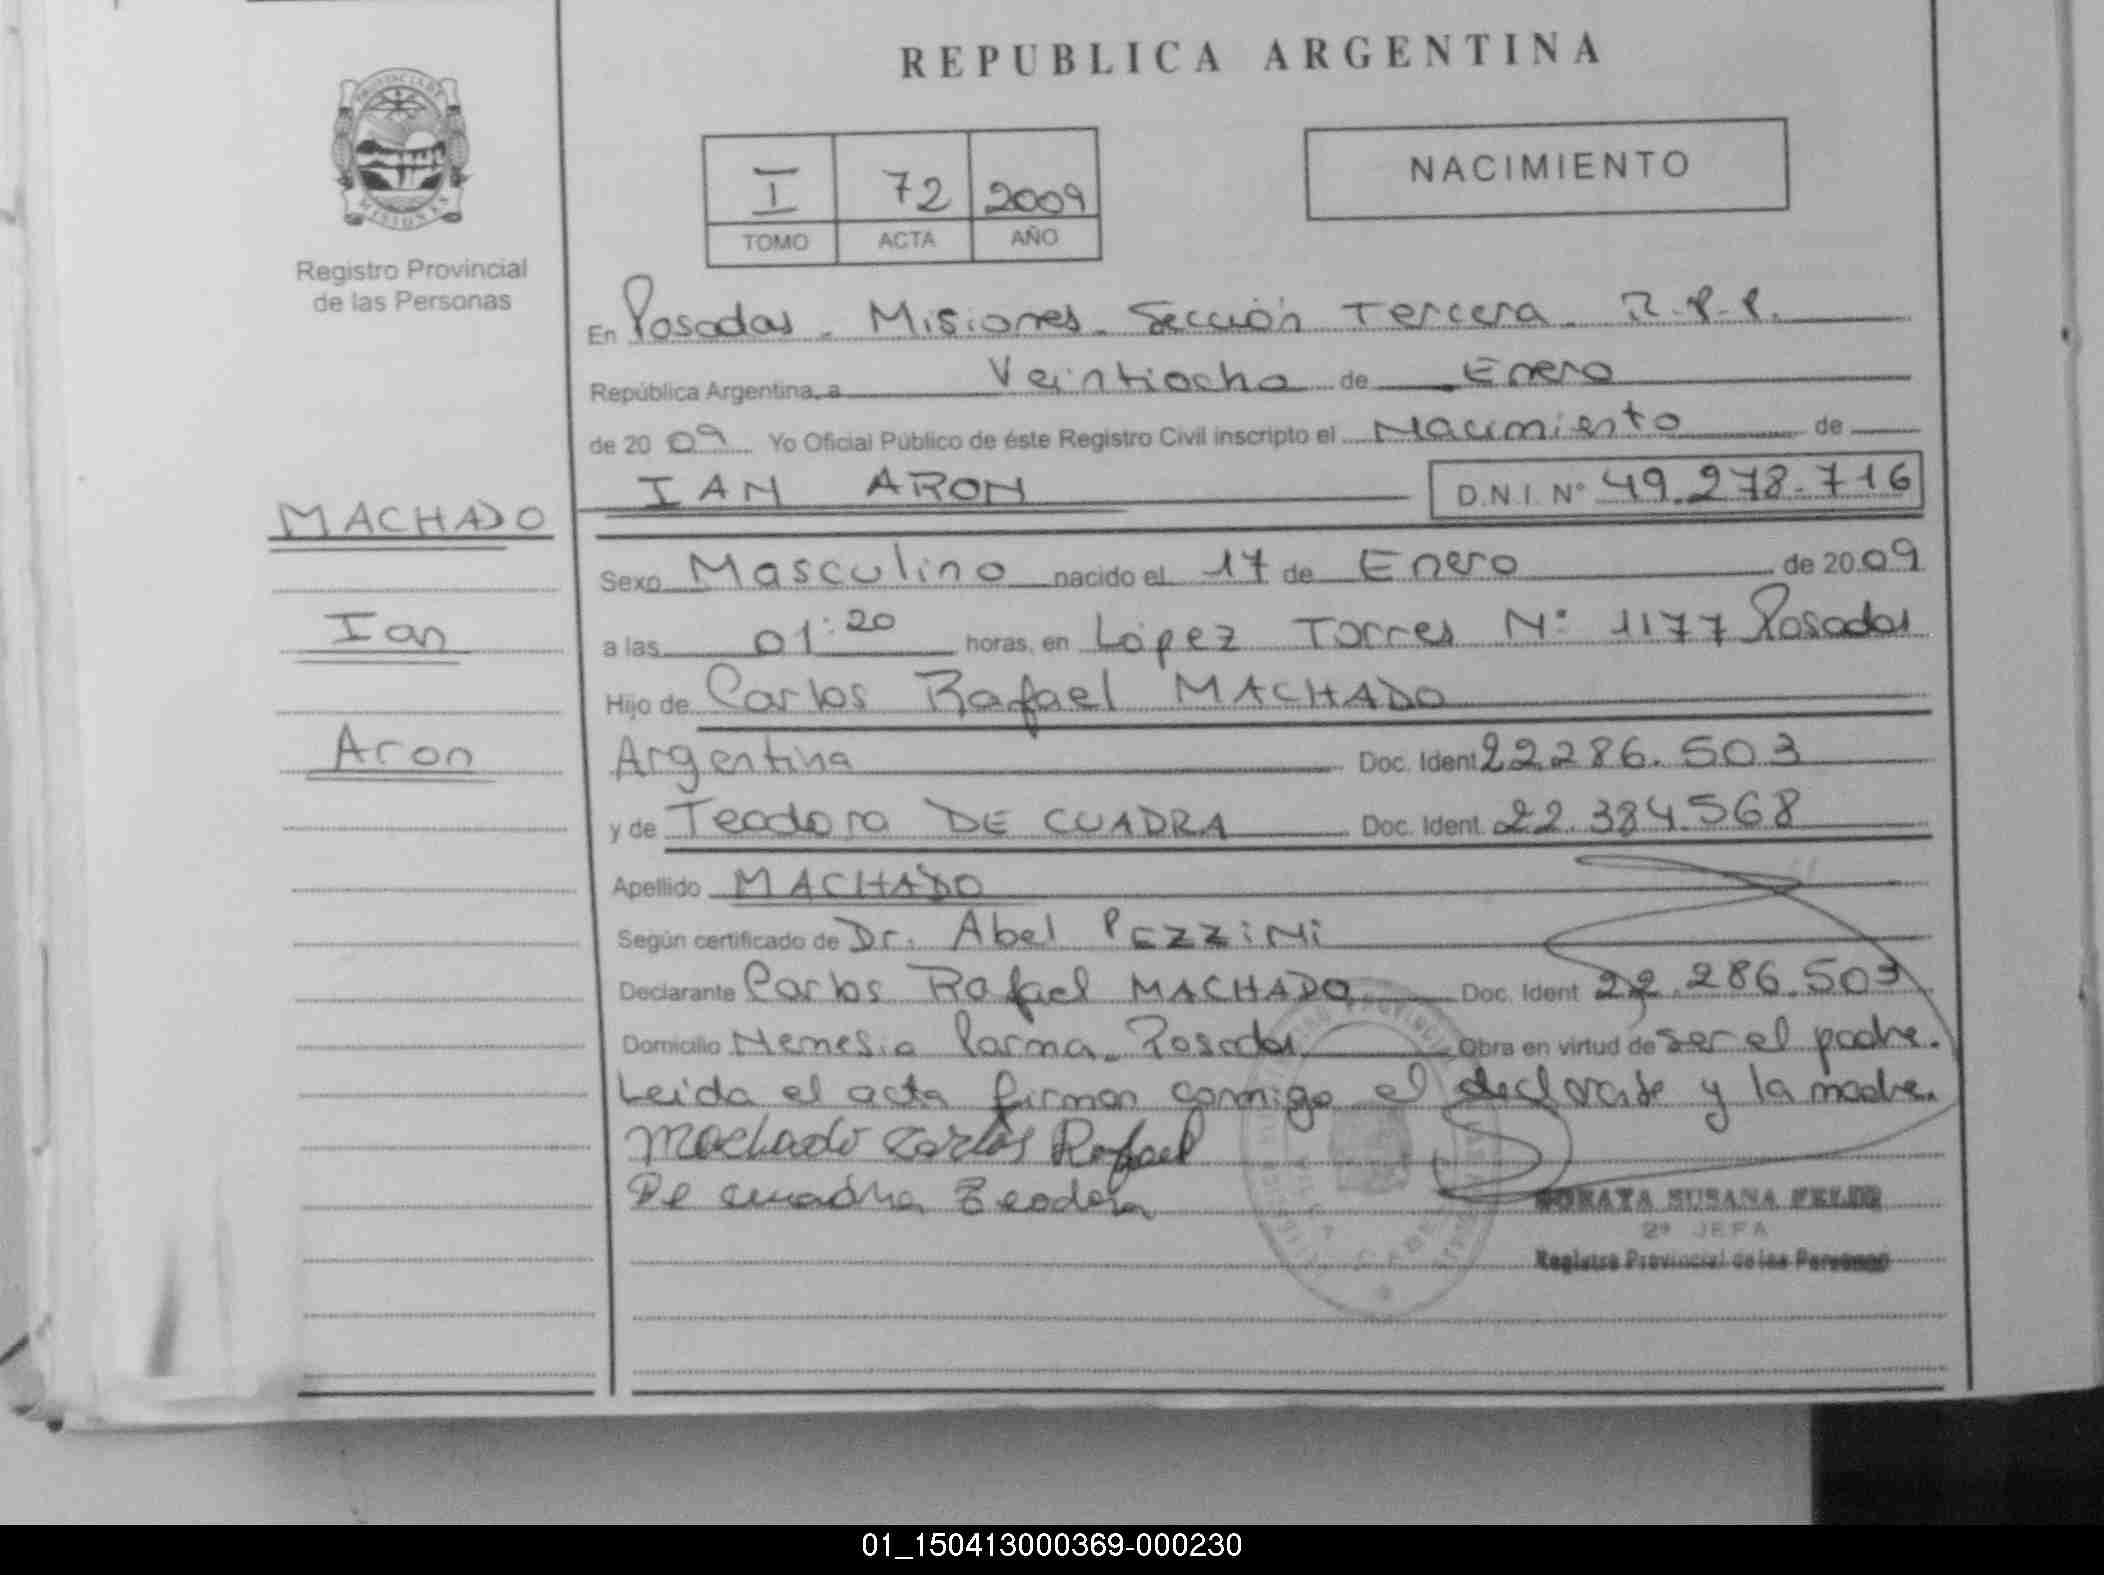 REPUBLICA ARGENTINA
PROVINCIA DE MISIONES
Registro Provincial
de las Personas
I 72 2009
TOMO ACTA AÑO
NACIMIENTO
En Posadas - Misiones - Sección Tercera - R.P.P.
República Argentina, a Veintiocho de Enero
de 2009 Yo Oficial Público de éste Registro Civil inscripto el Nacimiento de
IAN ARON D.N.I. Nº 49.278.716
MACHADO
Ian
Aron
Sexo Masculino nacido el 17 de Enero de 2009
a las 01:20 horas, en López Torres Nº 1177 Posadas
Hijo de Carlos Rafael MACHADO
Argentina Doc. Ident 22.286.503
y de Teodora DE CUADRA Doc. Ident. 22.384.568
Apellido MACHADO
Según certificado de Dr. Abel PEZZINI
Declarante Carlos Rafael MACHADO Doc. Ident 22.286.503
Domicilio Nemesio Parma - Posadas Obra en virtud de ser el padre.
Leida el acta firman conmigo el declarante y la madre.
Machado Carlos Rafael
De cuadra Teodora
SUSANA
2º JEFA
Registro Provincial de las Personas
01_150413000369-000230